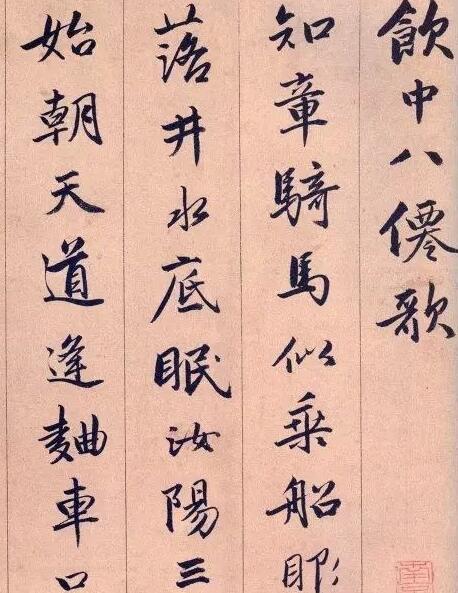 飲中八僊歌
知章騎馬似乘船眼
落井水底眠汝陽三
始朝天道逢麯車口